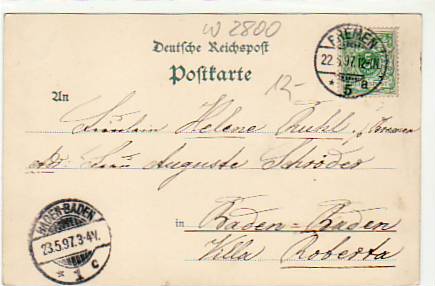 W 2800
Deutsche Reichspost
Postkarte
BREMEN
22.5.97. 12-1N.
* 5 a
12-
An
Fräulein Helene Ruhl, Bremen
Adr. Frau Auguste Schröder
in Baden-Baden
Villa Roberta
BADEN-BADEN
23.5.97. 3-4N.
* 1 c